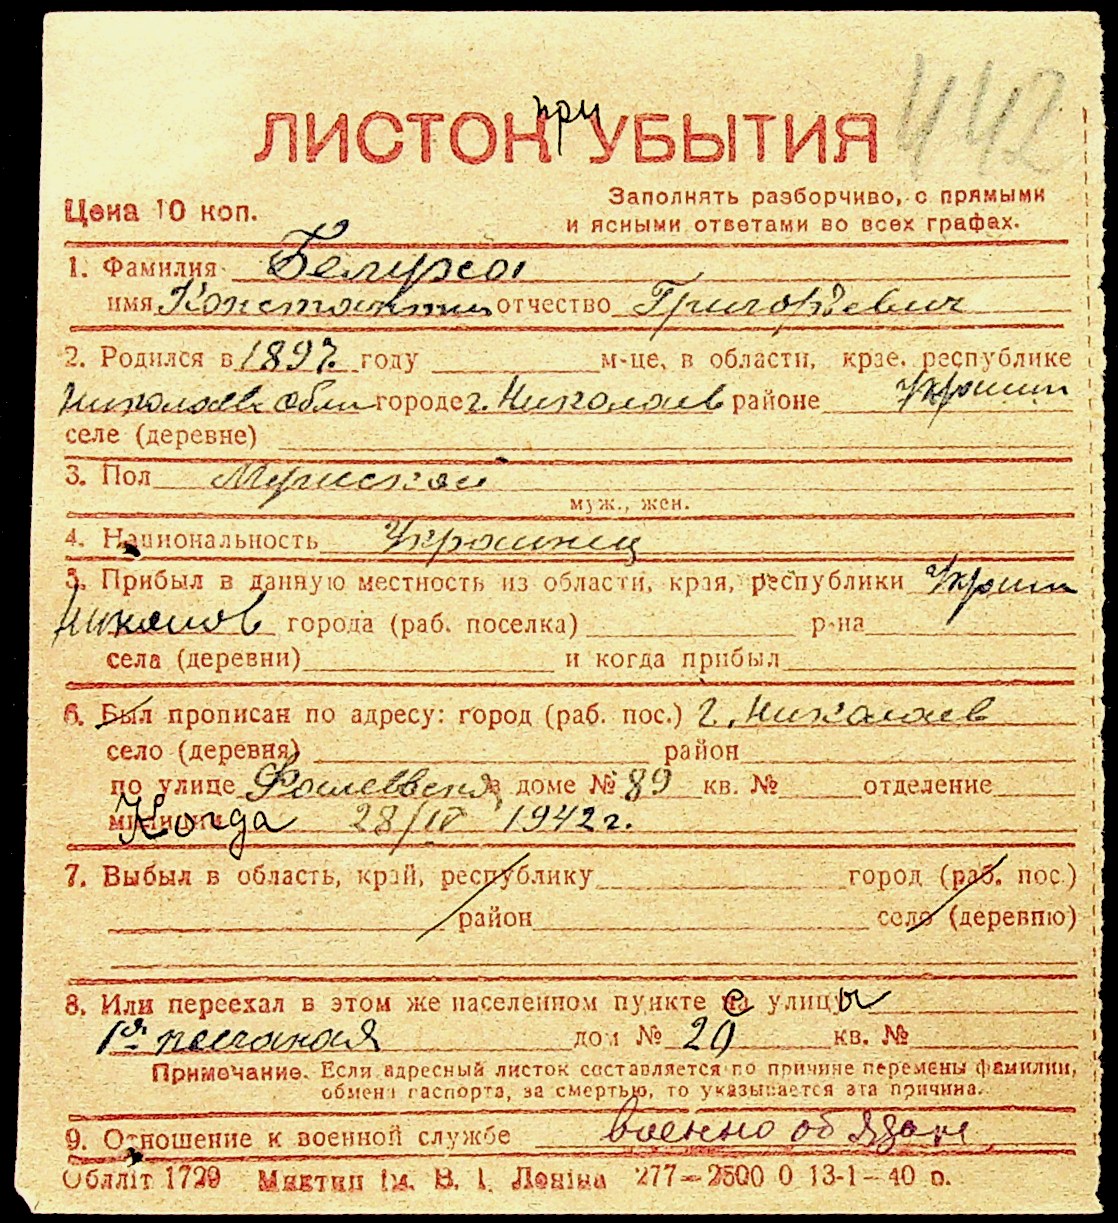 442
ЛИСТОК при УБЫТИЯ
Цена 10 коп.
Заполнять разборчиво, с прямыми
и ясными ответами во всех графах.
1. Фамилия Белуха
имя Константин отчество Григорьевич
2. Родился в 1897. году м-це, в области, крае, республике
Николаевск обли городе г. Николаев районе Украины
селе (деревне)
3. Пол Мужской
муж., жен.
4. Национальность Украинец
5. Прибыл в данную местность из области, края, республики Украины
Николаев города (раб. поселка) р-на
села (деревни) и когда прибыл
6. Был прописан по адресу: город (раб. пос.) г. Николаев
село (деревня) район
по улице в доме № 89 кв. № отделение
милиции Когда 28/IV 1942 г.
7. Выбыл в область, край, республику город (раб. пос.)
район село (деревню)
8. Или переехал в этом же населенном пункте с улицы
1я песчаная дом № 20 кв. №
Примечание. Если адресный листок составляется по причине перемены фамилии,
обмена паспорта, за смертью, то указывается эта причина.
9. Отношение к военной службе военно обязан
Обллiт 1729 Миктип iм. В. I. Ленiна 277—2500 0 13-1-40 р.